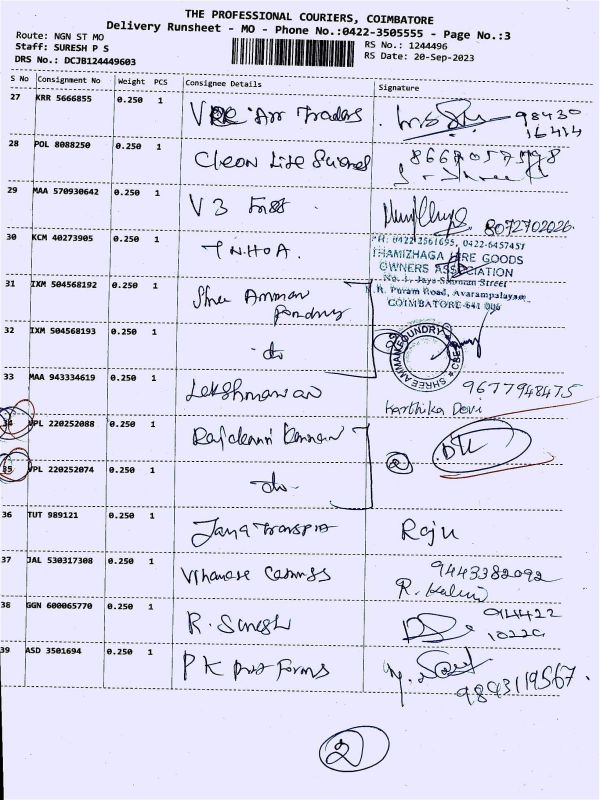 THE PROFESSIONAL COURIERS, COIMBATORE
Delivery Runsheet - MO - Phone No.:0422-3505555 - Page No.:3
Route: NGN ST MO
Staff: SURESH P S
DRS No.: DCJB124449603
RS No.: 1244496
RS Date: 20-Sep-2023
S No Consignment No Weight PCS Consignee Details Signature
27 KRR 5666855 0.250 1 Air Traders 98430
16414
28 POL 8088250 0.250 1
29 MAA 570930642 0.250 1 V 3 8072702026
30 KCM 40273905 0.250 1 T N H O A.
PH: 0422-2561695, 0422-6457457
THAMIZHAGA HIRE GOODS
OWNERS ASSOCIATION
COIMBATORE-641 006
31 IXM 504568192 0.250 1 Shree Amman
Foundry
32 IXM 504568193 0.250 1 do
SHREE AMMAN FOUNDRY CBE
33 MAA 943334619 0.250 1 Lakshmanan 9677948475
Karthika Devi
34 VPL 220252088 0.250 1
35 VPL 220252074 0.250 1 do 2
36 TUT 989121 0.250 1 Jaya Transport Raju
37 JAL 530317308 0.250 1 9443382092
38 GGN 600065770 0.250 1 R. Suresh 94422
10229
39 ASD 3501694 0.250 1 P K Forms 9893119567.
2